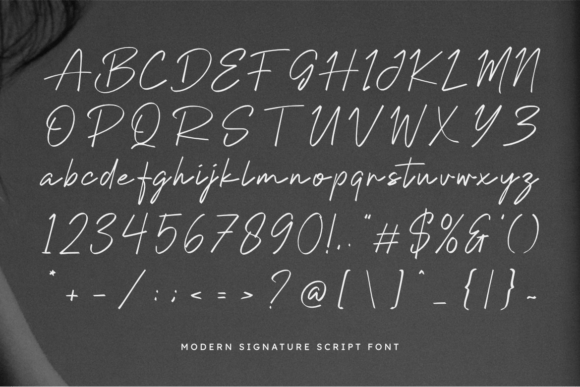 ABCDEFGHIJKLMN
OPQRSTUVWXYZ
abcdefghijklmnopqrstuvwxyz
1234567890!.,"#$%&'()
*+-/:;<=>?@[\]^_{|}~
MODERN SIGNATURE SCRIPT FONT